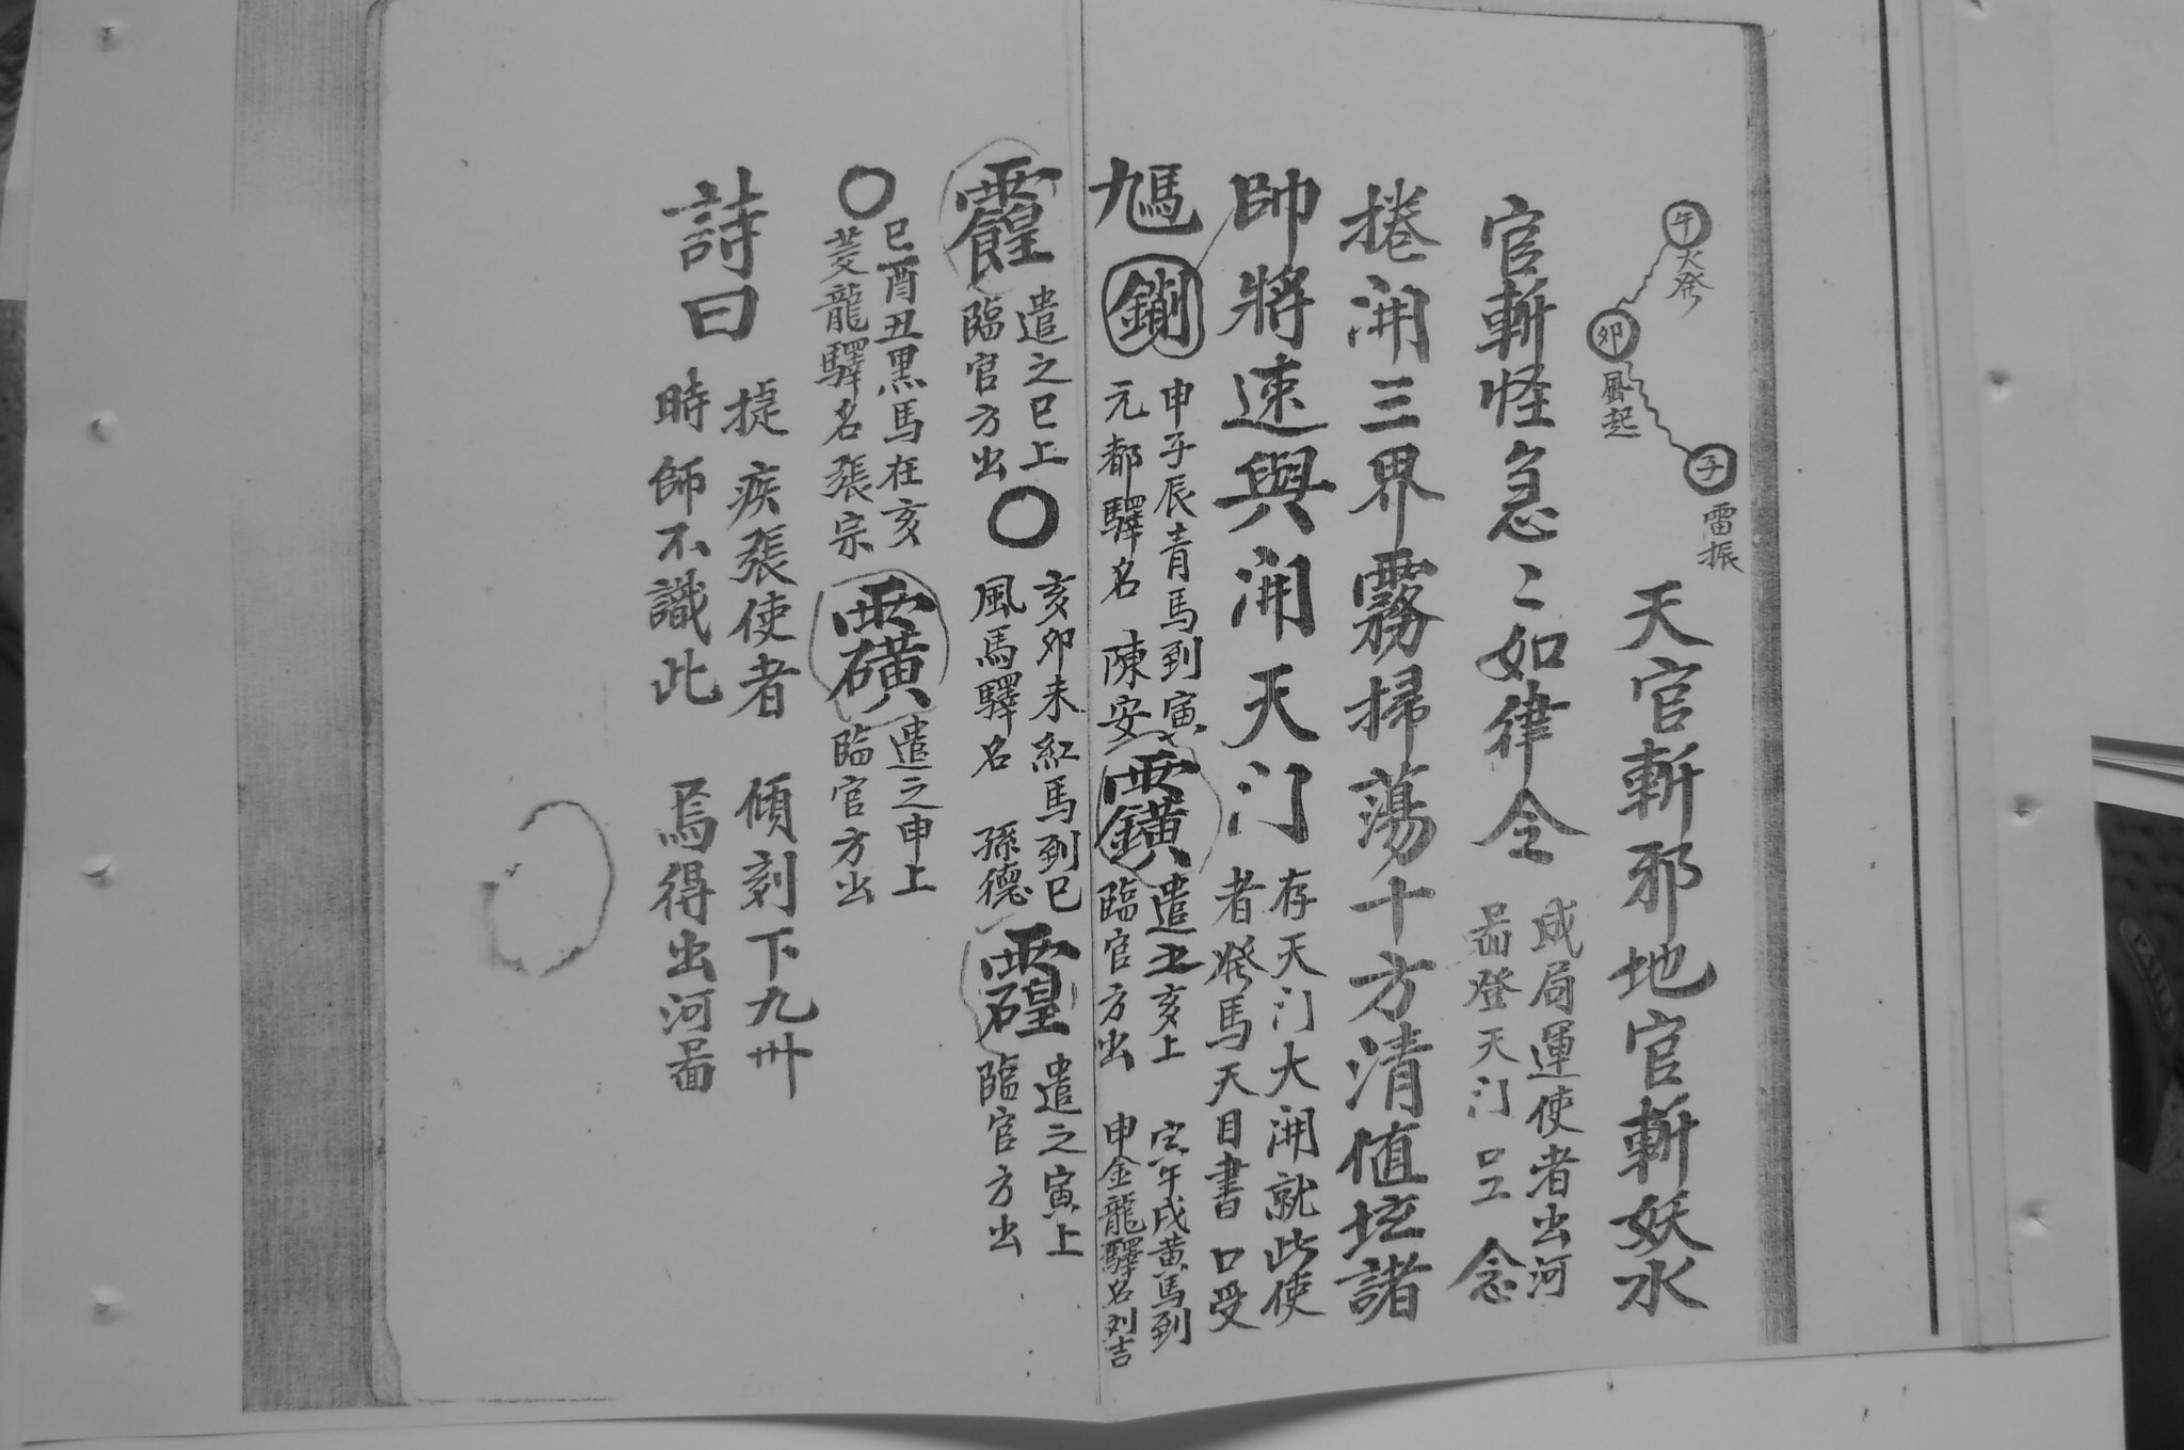 午 火發
卯 風起
子 雷振
天官斬邪地官斬妖水
官斬怪急〻如律令
成局運使者出河
啚登天门 念
捲開三界霧掃蕩十方清值坛諸
帥將速與開天门
存天门大開就此使
者發馬天目書口受
申子辰青馬到寅
元都驛名陳安
遣之亥上
臨官方出
寅午戌黄馬到
申金龍驛名刘吉
遣之巳上
臨官方出
〇
亥卯未紅馬到巳
風馬驛名孫德
遣之寅上
臨官方出
〇
巳酉丑黑馬在亥
菱龍驛名張宗
遣之申上
臨官方出
詩曰
捷疾張使者 傾刻下九州
時師不識此 焉得出河啚